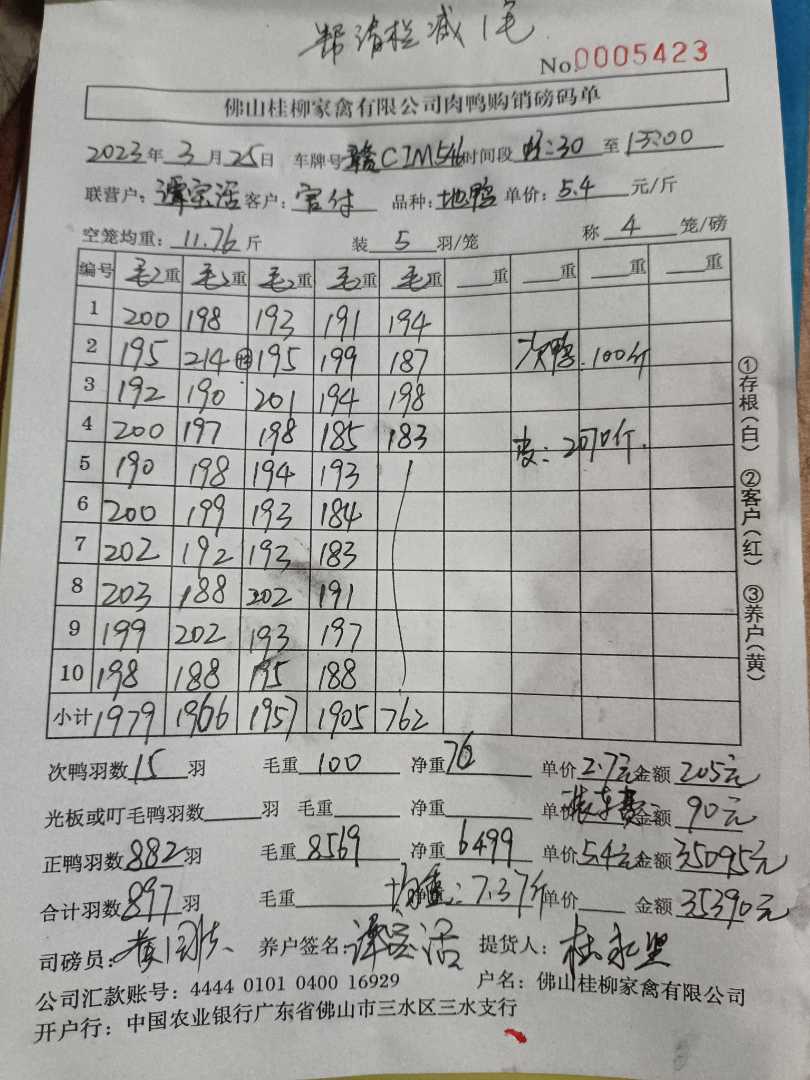 帮清栏减1毛
No.0005423
佛山桂柳家禽有限公司肉鸭购销磅码单
2023年3月25日 车牌号赣C7M546时间段:30至13:00
联营户:谭宗活 客户:官付 品种:地鸭 单价:5.4元/斤
空笼均重:11.76斤 装5羽/笼 称4笼/磅
编号 毛重 毛重 毛重 毛重 毛重 重 重 重 重
1 200 198 193 191 194
2 195 214 195 199 187 次鸭:100斤
3 192 190 201 194 198
4 200 197 198 185 183 皮:2070斤.
5 190 198 194 193
6 200 199 193 184
7 202 192 193 183
8 203 188 202 191
9 199 202 193 197
10 198 188 195 188
小计 1979 1966 1957 1905 762
①存根(白) ②客户(红) ③养户(黄)
次鸭羽数15羽 毛重100 净重76 单价2.7元金额205元
光板或叮毛鸭羽数 羽 毛重 净重 单价装车费金额90元
正鸭羽数882羽 毛重8569 净重6499 单价5.4元金额35095元
合计羽数897羽 毛重 净重均重:7.37斤单价 金额35390元
司磅员: 养户签名:谭宗活 提货人:杜永坚
公司汇款账号:4444 0101 0400 16929 户名:佛山桂柳家禽有限公司
开户行:中国农业银行广东省佛山市三水区三水支行